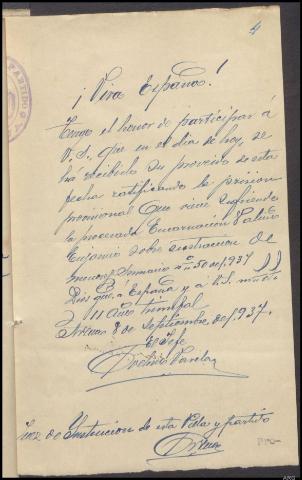 4
¡Viva España!
Tengo el honor de participar á
V.S. que en el dia de hoy, se
há recibido su proveido de esta
fecha ratificando la prision
provisional que viene sufriendo
la procesada Encarnación
sobre sustraccion de
menores Sumario nº 50 de 1,937
Dios gue. a España y a V.S. m. a.
II año triunfal
8 de Septiembre de 1.937.
El Jefe
Varela
Juez de Instrucion de esta Villa y partido
PARTIDO